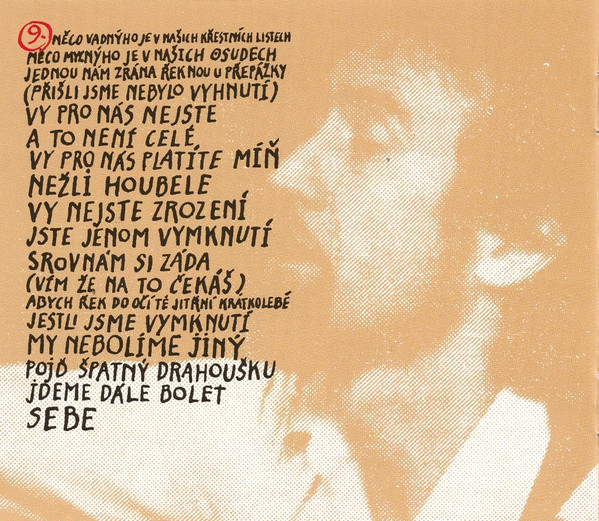 9. NĚCO VADNÝHO JE V NAŠICH KŘESTNÍCH LISTECH
NĚCO MYLNÝHO JE V NAŠICH OSUDECH
JEDNOU NÁM ZRÁNA ŘEKNOU U PŘEPÁŽKY
(PŘIŠLI JSME NEBYLO VYHNUTÍ)
VY PRO NÁS NEJSTE
A TO NENÍ CELÉ
VY PRO NÁS PLATÍTE MÍŇ
NEŽLI HOUBELE
VY NEJSTE ZROZENÍ
JSTE JENOM VYMKNUTÍ
SROVNÁM SI ZÁDA
(VÍM ŽE NA TO ČEKÁŠ)
ABYCH ŘEK DO OČÍ TÉ JITŘNÍ KRÁTKOLEBÉ
JESTLI JSME VYMKNUTÍ
MY NEBOLÍME JINÝ
POJĎ ŠPATNÝ DRAHOUŠKU
JDEME DÁLE BOLET
SEBE